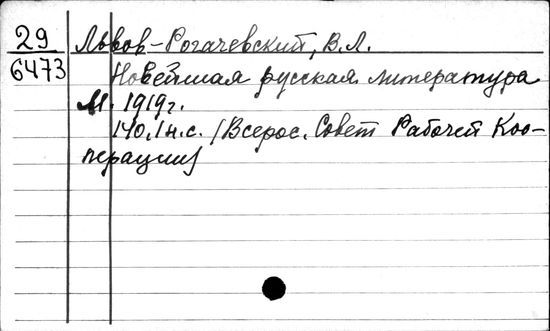 29 Львов-Рогачевский, В.Л.
6473 Новейшая русская литература
М. 1919г.
140,1н.с. (Всерос. Совет Рабочей Коо-
перации)